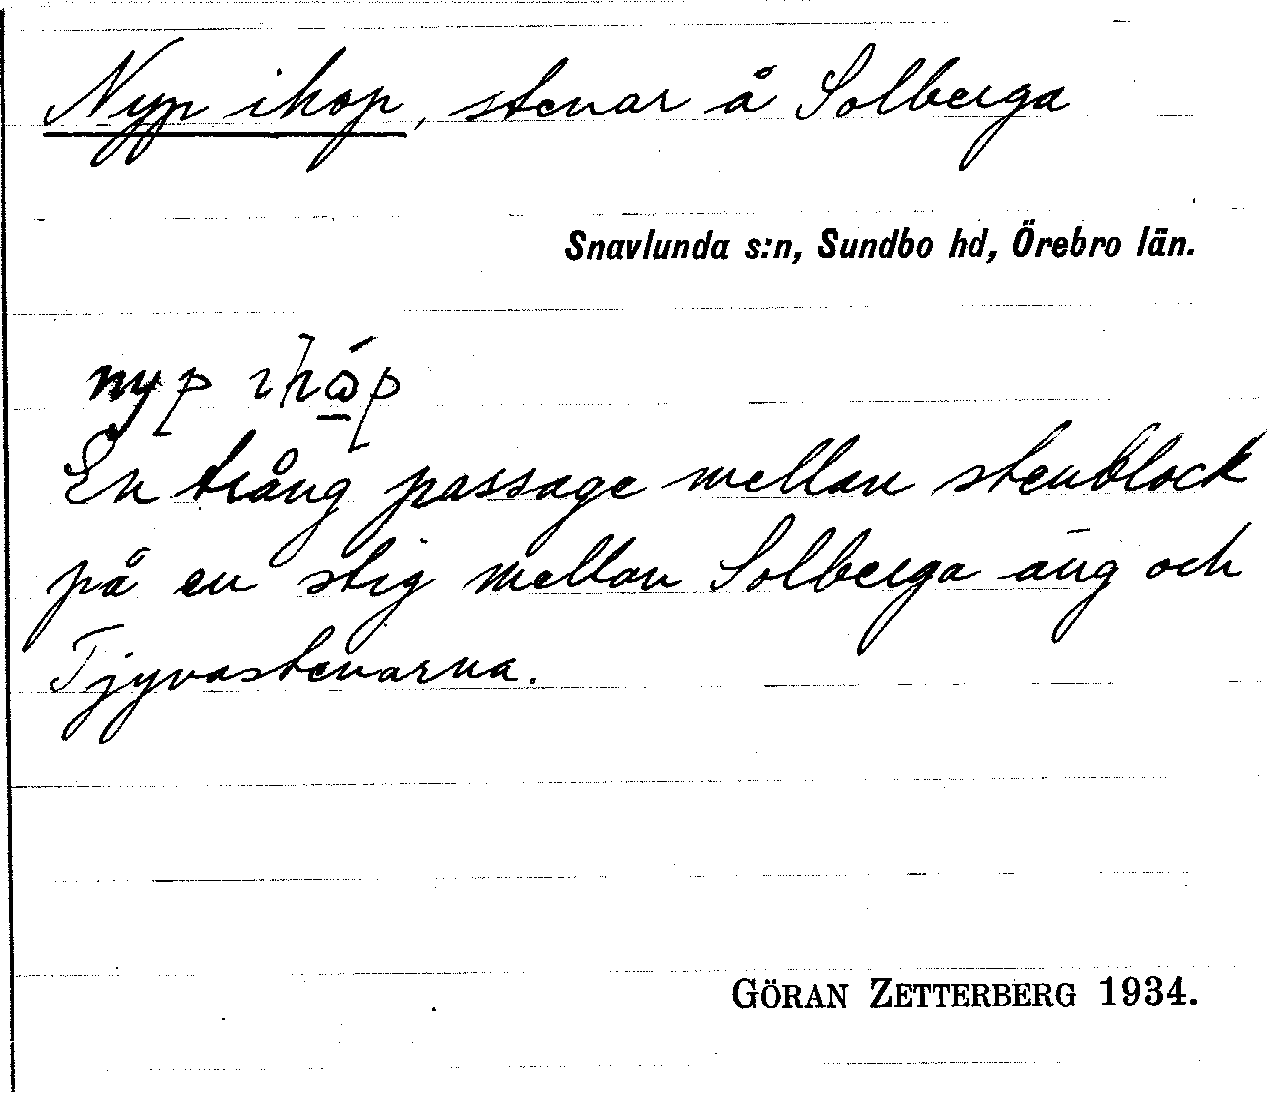 Nyp ihop, stenar å Solberga
Snavlunda s:n, Sundbo hd, Örebro län.
nyp
En trång passage mellan stenblock
på en stig mellan Solberga äng och
Tjyvastenarna.
GÖRAN ZETTERBERG 1934.